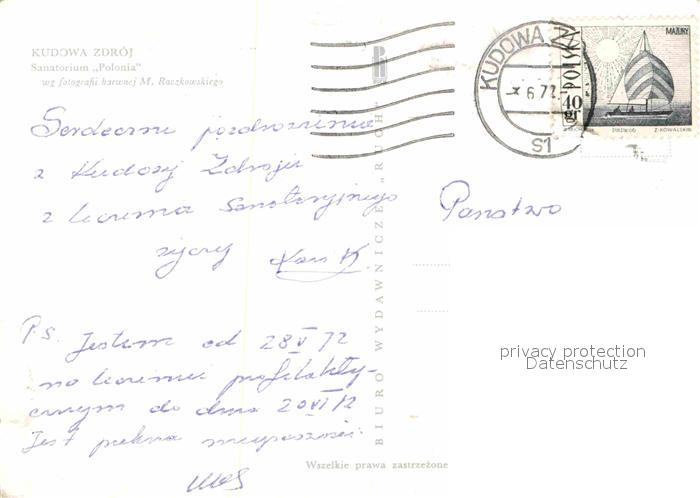 KUDOWA ZDRÓJ
Sanatorium „Polonia"
wg fotografii barwnej M. Raczkowskiego
Serdeczne pozdrowienia
z Kudowy Zdroju
z leczenia Sanatoryjnego
życzy
P.S. Jestem od 28 V 72
na leczeniu profilakty-
cznym do dnia 20 VI 72
Jest piękna miejscowość.
BIURO WYDAWNICZE „RUCH"
Wszelkie prawa zastrzeżone
KUDOWA Z
6.72
S1
MAZURY
POLSKA
40 gr
Z. KOWALSKI
Państwo
privacy protection
Datenschutz